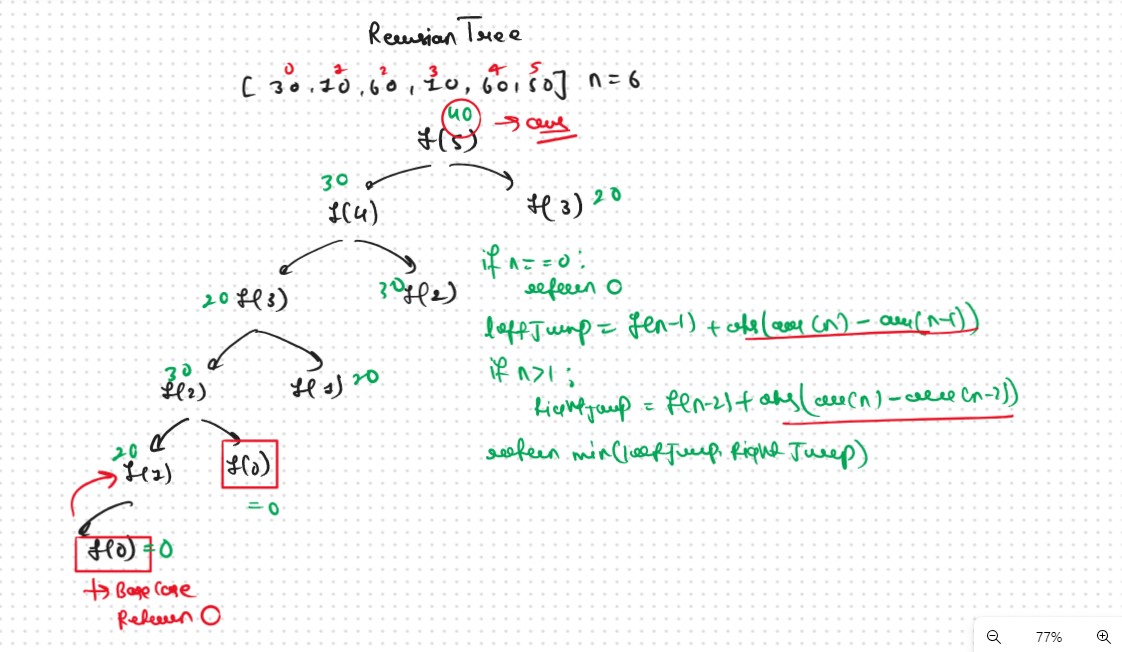 Recursion Tree
0 1 2 3 4 5
[ 30, 10, 60, 10, 60, 50] n = 6
40
f(5) → ans
30
f(4)
f(3) 20
20 f(3)
30 f(2)
30
f(2)
f(1) 20
20
f(1)
f(0)
= 0
f(0) = 0
→ Base Case
Return 0
if n == 0:
return 0
leftJump = f(n-1) + abs(arr(n) - arr(n-1))
if n>1 :
RightJump = f(n-2) + abs(arr(n) - arr(n-2))
return min(leftJump, RightJump)
77%